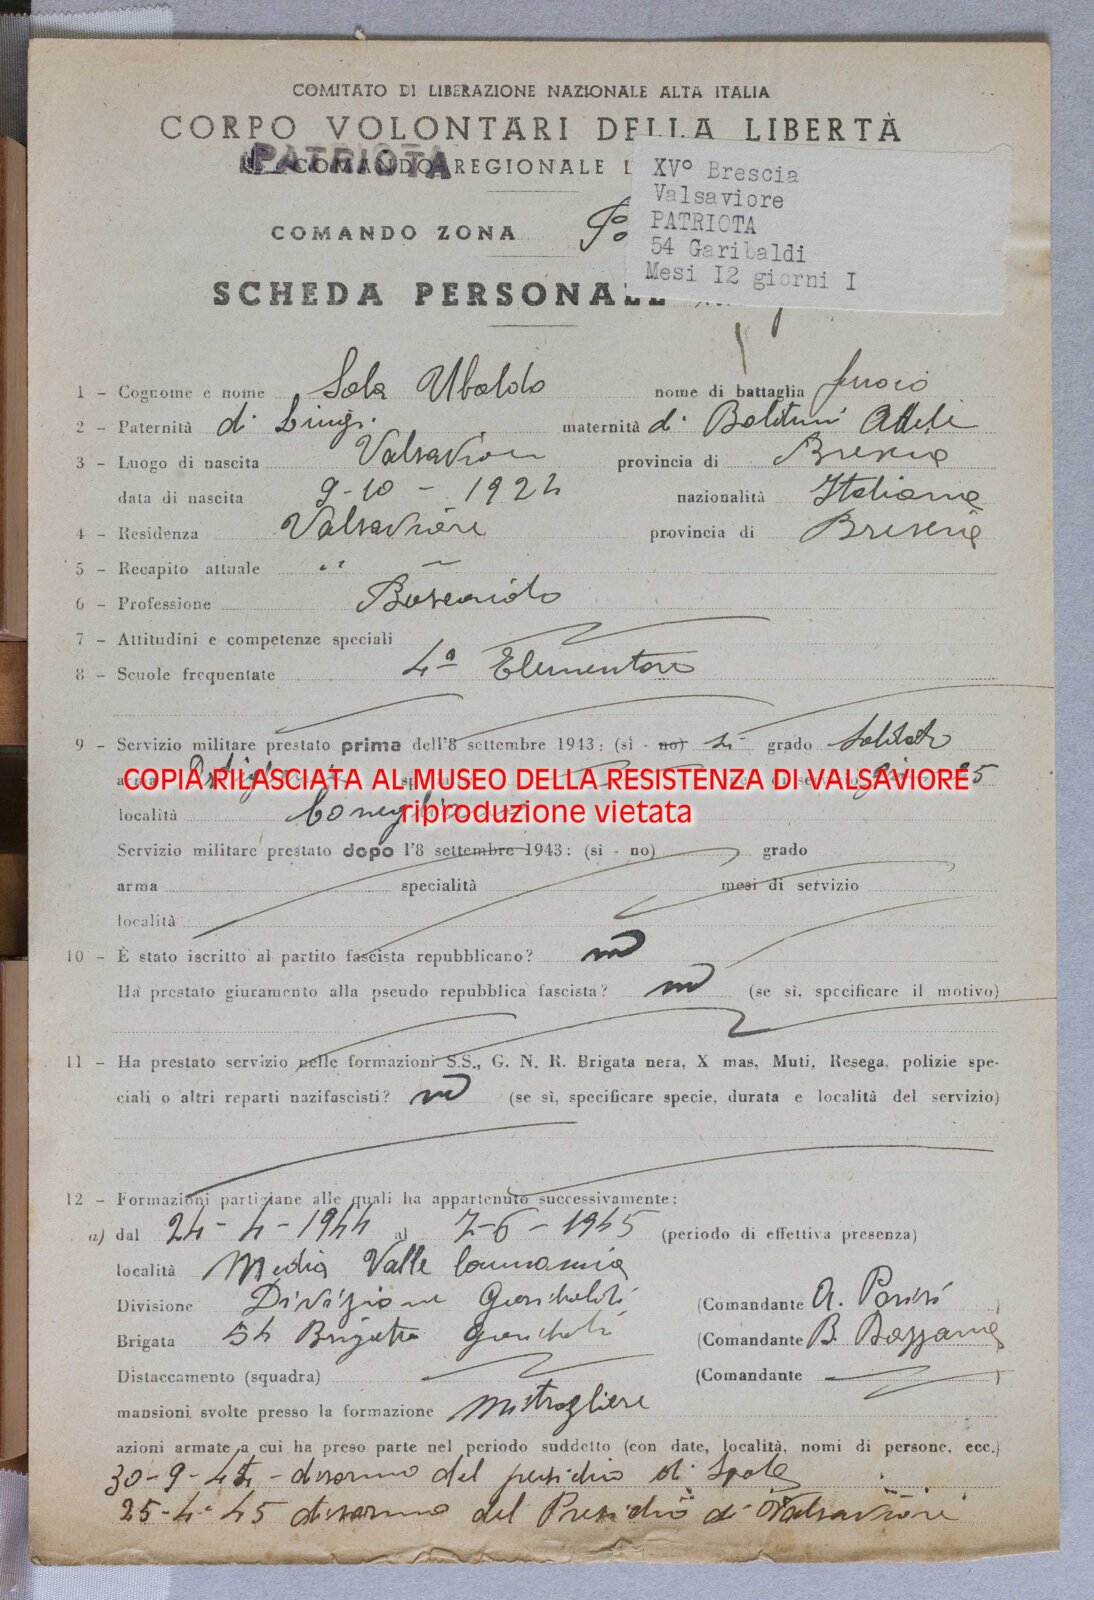 COMITATO DI LIBERAZIONE NAZIONALE ALTA ITALIA
CORPO VOLONTARI DELLA LIBERTÀ
PATRIOTA
COMANDO REGIONALE L
XV° Brescia
Valsaviore
PATRIOTA
54 Garibaldi
Mesi I2 giorni I
COMANDO ZONA
SCHEDA PERSONALE
1 - Cognome e nome Sola Ubaldo nome di battaglia
2 - Paternità di Luigi maternità di Adele
3 - Luogo di nascita Valsaviore provincia di Brescia
data di nascita 9-10-1924 nazionalità Italiana
4 - Residenza Valsaviore provincia di Brescia
5 - Recapito attuale " "
6 - Professione Boscaiolo
7 - Attitudini e competenze speciali
8 - Scuole frequentate 4ª Elementare
9 - Servizio militare prestato prima dell'8 settembre 1943: (sì - no) si grado Soldato
arma Artiglieria 25
COPIA RILASCIATA AL MUSEO DELLA RESISTENZA DI VALSAVIORE
località Conegliano
riproduzione vietata
Servizio militare prestato dopo l'8 settembre 1943: (sì - no) grado
arma specialità mesi di servizio
località
10 - È stato iscritto al partito fascista repubblicano? no
Ha prestato giuramento alla pseudo repubblica fascista? no (se sì, specificare il motivo)
11 - Ha prestato servizio nelle formazioni S.S., G. N. R. Brigata nera, X mas, Muti, Resega, polizie spe-
ciali o altri reparti nazifascisti? no (se sì, specificare specie, durata e località del servizio)
12 - Formazioni partigiane alle quali ha appartenuto successivamente:
a) dal 24-4-1944 al 7-6-1945 (periodo di effettiva presenza)
località Media Valle Camonica
Divisione Divisione Garibaldi (Comandante A. Parisi )
Brigata 54 Brigata Garibaldi (Comandante B. Bazzana
Distaccamento (squadra) (Comandante )
mansioni svolte presso la formazione Mitragliere
azioni armate a cui ha preso parte nel periodo suddetto (con date, località, nomi di persone, ecc.)
30-9-44 - disarmo del presidio di
25-4-45 disarmo del Presidio di Valsaviore